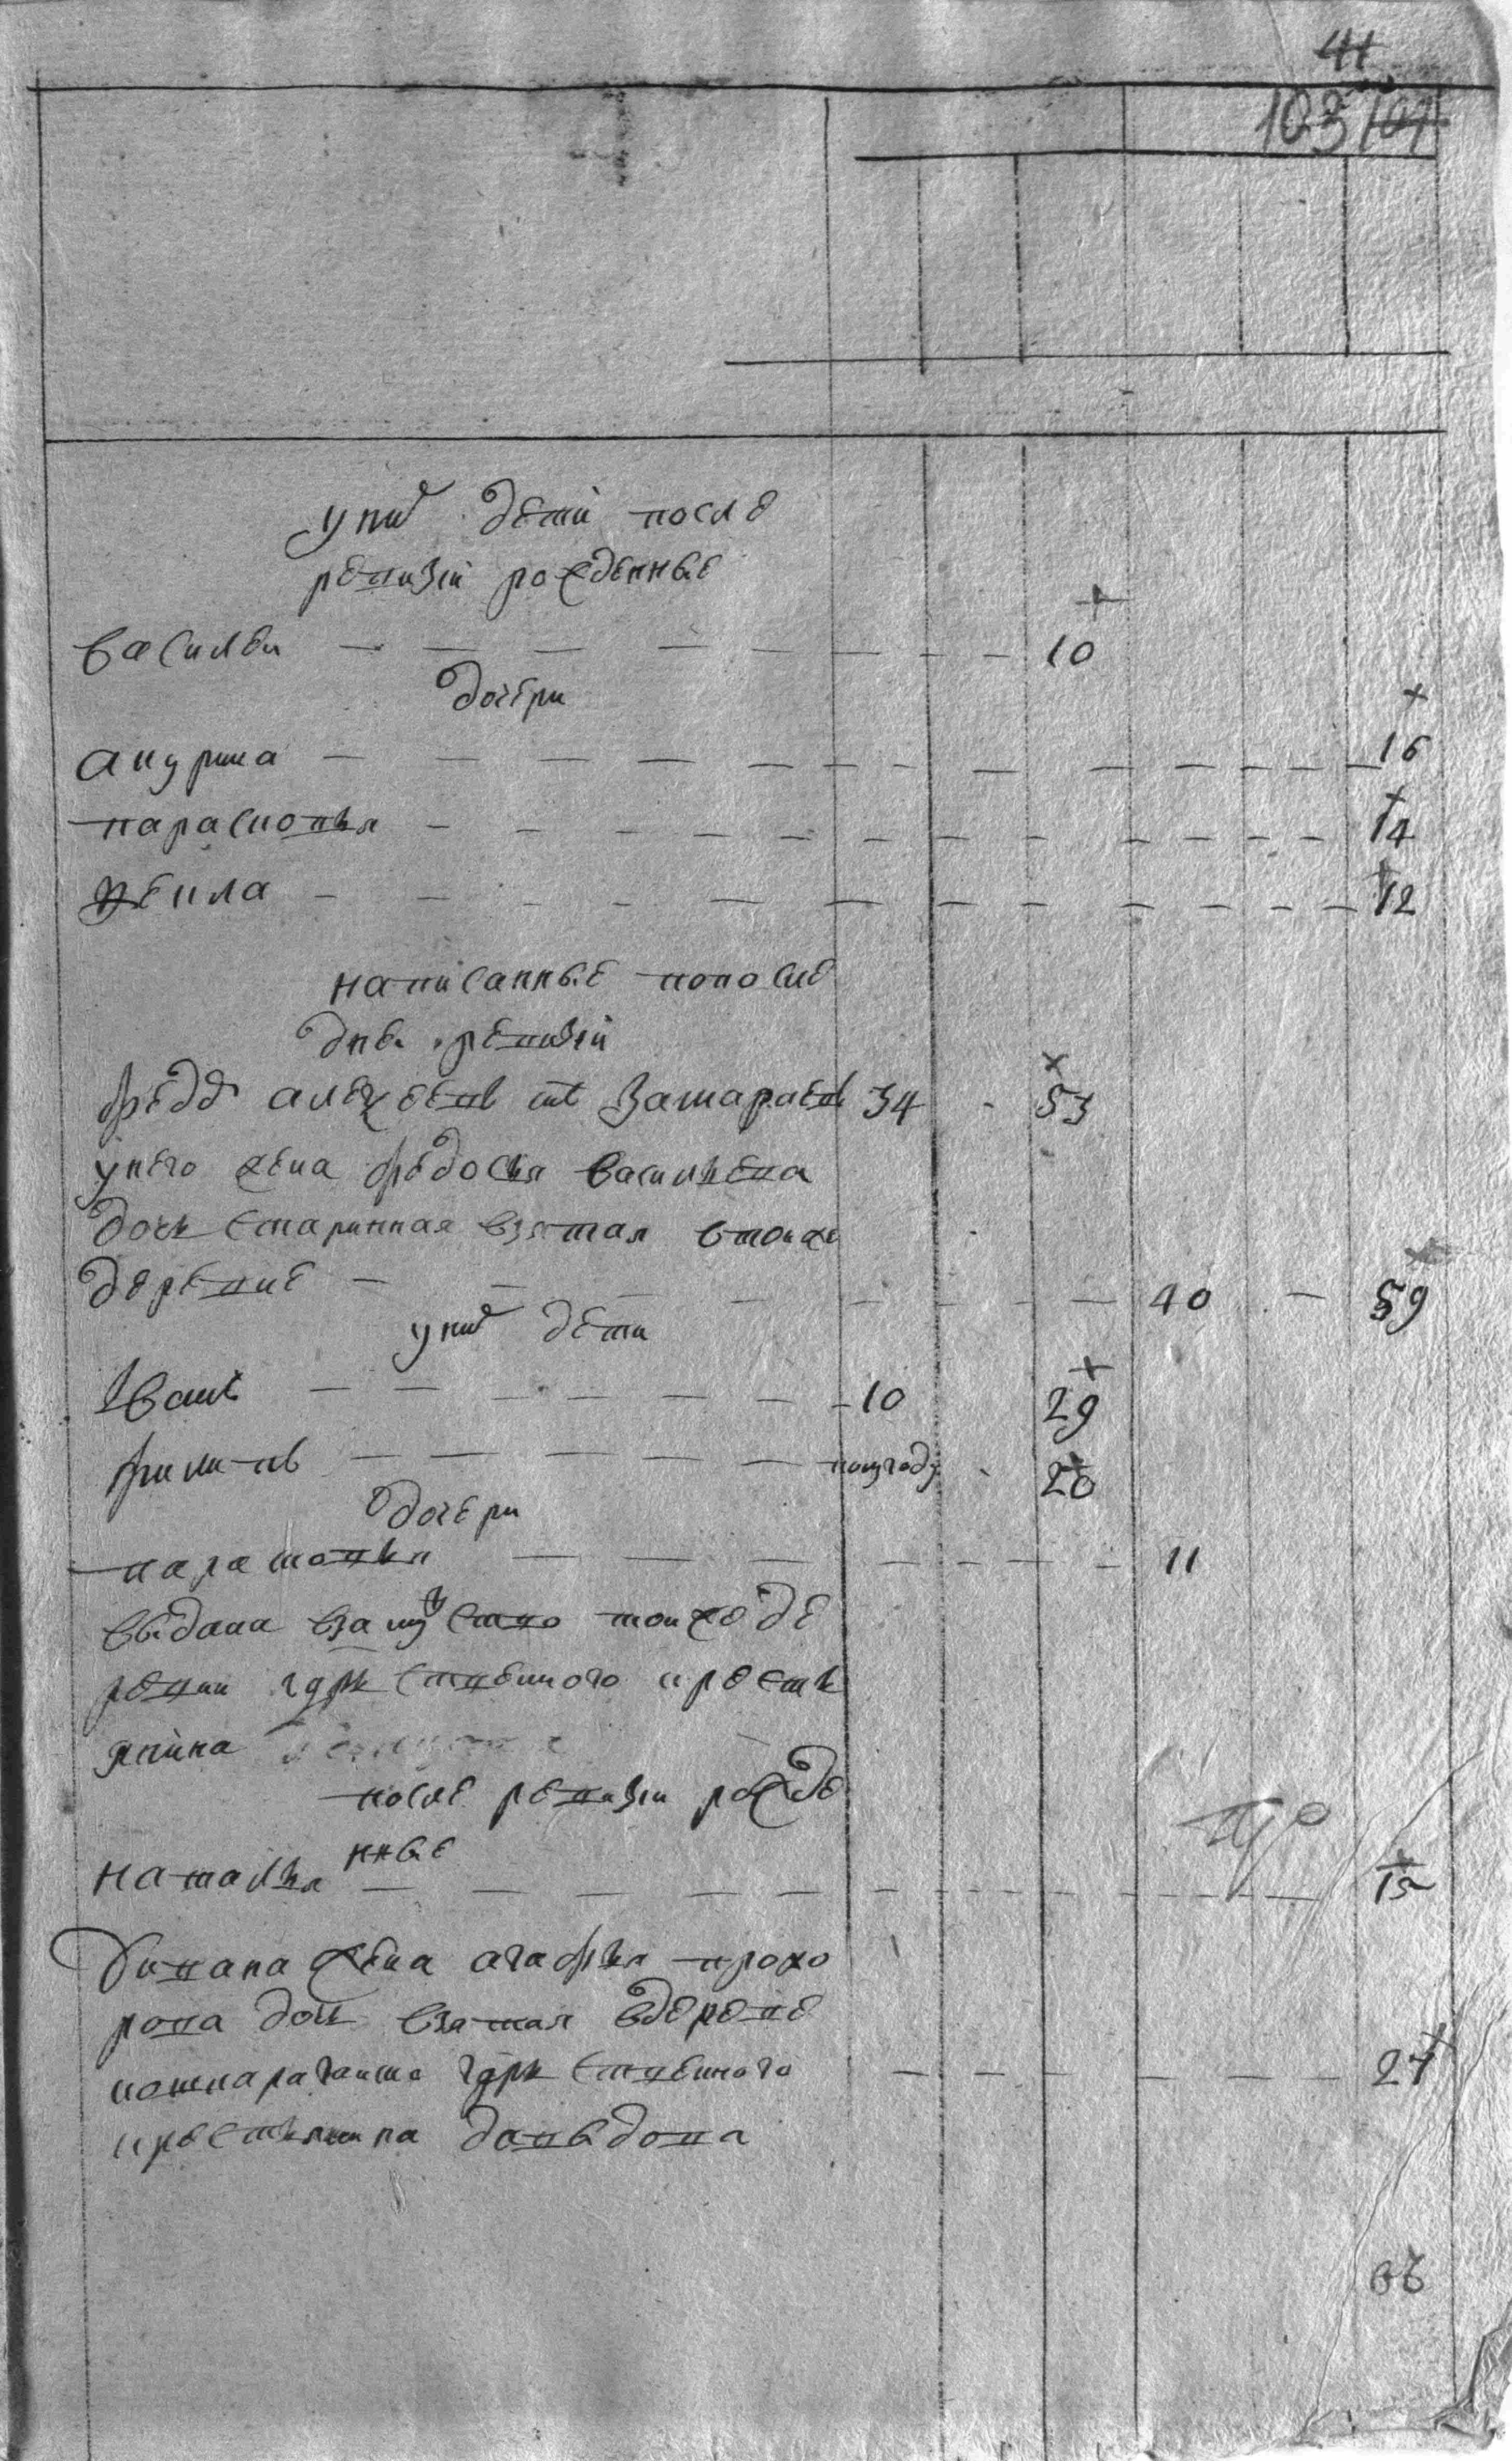 41
103 101
у них дети после
ревизии рожденные
василеи 10
дочери
акулина 16
парасковья 14
фекла 12
написанные по послѣ
дней ревизии
федоръ алексеевъ сынъ 34 53
у него жена федосья васильева
дочь старинная взятая в тои же
деревне 40 59
у них дети
Иванъ 10 29
филипъ полугоду 20
дочери
парасковья 11
выдана в замужство тои же де
ревни гдрьственного кресть
янина
после ревизии рожде
нные
наталья 15
жена агафья прохо
рова дочь взятая в деревне
гдрьственного 27
крестьянина давыдова